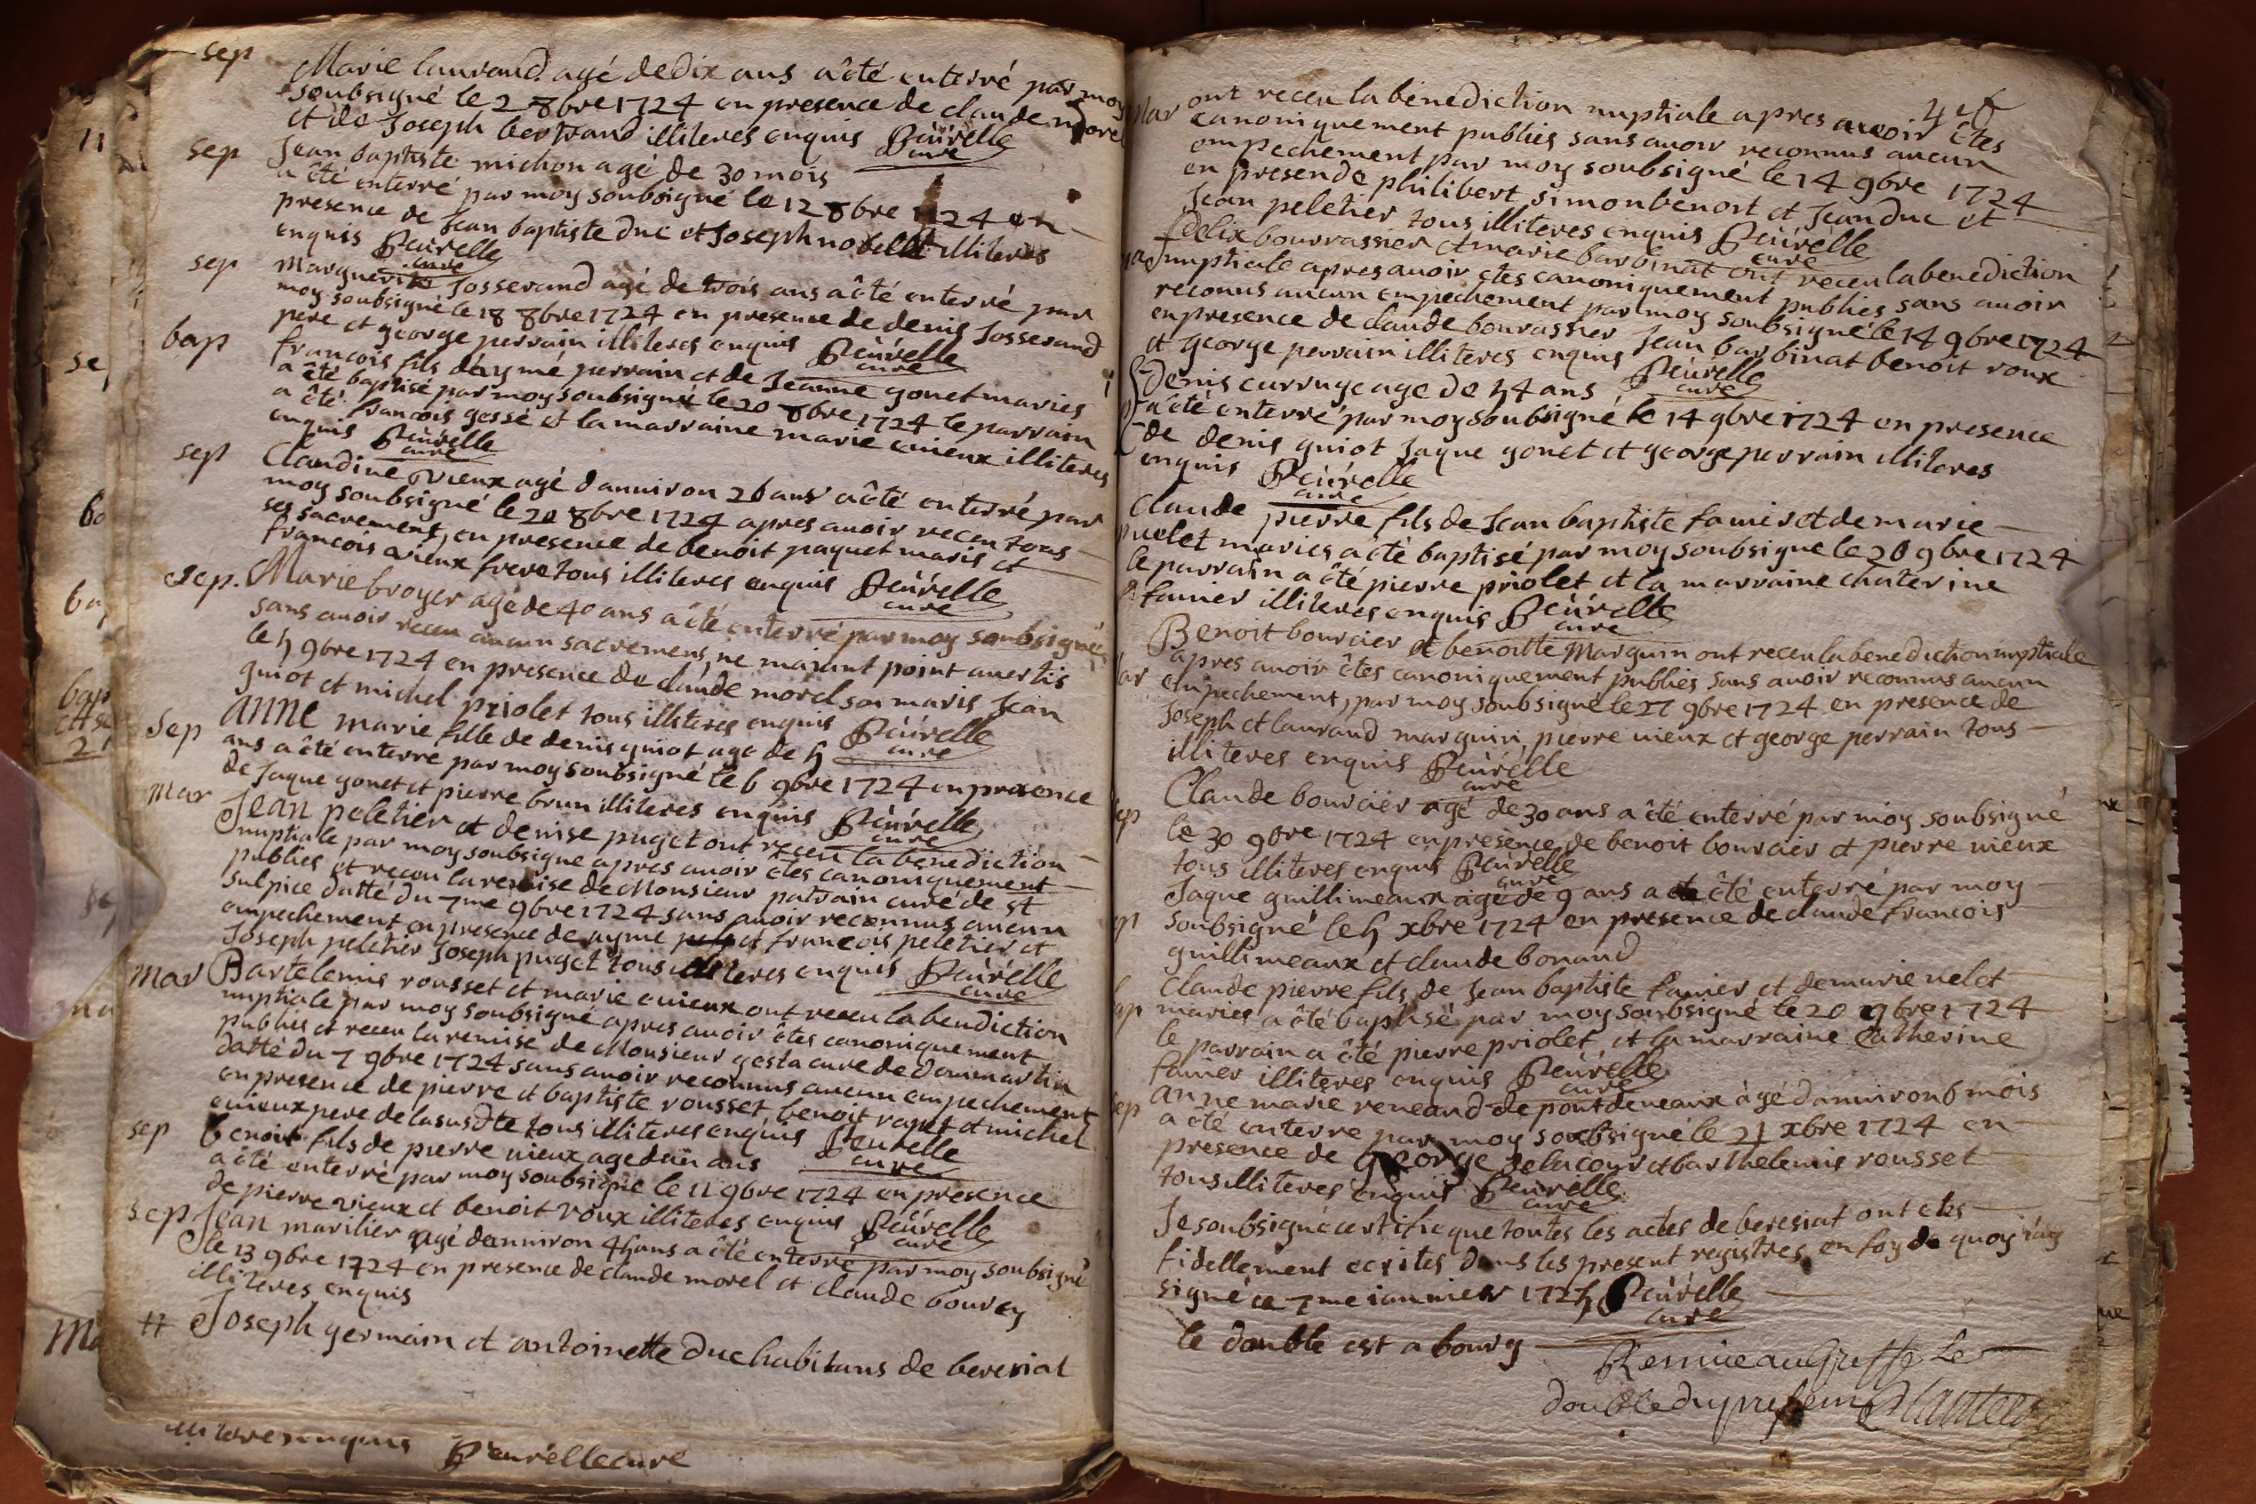 sep Marie laurand agé de dix ans a êté enterré par moy
soubsigné le 2 8bre 1724 en presence de claude morel
et de Joseph bertrand illiteres enquis Peurelle
curé
sep Jean baptiste michon agé de 30 mois
a êté enterré par moy soubsigné le 12 8bre 1724 en
presence de Jean baptiste duc et Joseph nobellet illiteres
enquis Peurelle
curé
sep Marguerite Josserand agé de trois ans a êté enterré par
moy soubsigné le 18 8bre 1724 en presence de denis Josserand
pere et george perrain illiteres enquis Peurelle
curé
bap francois fils d'aymé perrain et de Jeanne gonet mariés
a êté baptisé par moy soubsigné le 20 8bre 1724 le parrain
a êté francois gesse et la marraine marie cuieux illiteres
enquis Peurelle
curé
sep Claudine vieux agé d'anniron 26 ans a êté enterré par
moy soubsigné le 20 8bre 1724 apres auoir receu tous
ses sacrement, en presence de benoit paquet maris et
francois vieux frere tous illiteres enquis Peurelle
curé
sep. Marie broyer agé de 40 ans a êté enterré par moy soubsigné
sans auoir receu aucun sacremens, ne maiant point auertis
le 5 9bre 1724 en presence de claude morel son maris Jean
guiot et michel priolet tous illiteres enquis Peurelle
curé
sep anne marie fille de denis guiot age de 5
ans a êté enterré par moy soubsigné le 6 9bre 1724 en presence
de Jaque gonet et pierre brun illiteres enquis Peurelle
curé
mar Jean peletier et denise puget ont receu la benediction
nuptiale par moy soubsigné apres auoir êtes canoniquement
publies et receu la remise de Monsieur patrain curé de st
sulpice datté du 7me 9bre 1724 sans auoir reconnus aucun
empechement en presence de ayme et francois peletier et
Joseph peletier Joseph puget tous illiteres enquis Peurelle
curé
mar Bartelemis rousset et marie cuieux ont receu la benediction
nuptiale par moy soubsigné apres auoir êtes canoniquement
publies et receu la remise de Monsieur gesta cure de dommartin
datté du 7 9bre 1724 sans auoir reconnus aucun empechement
en presence de pierre et baptiste rousset, benoit rapet et michel
cuieux pere de la susdte tous illiteres enquis Peurelle
curé
sep benoit fils de pierre vieux age d'un ans
a êté enterré par moy soubsigné le 11 9bre 1724 en presence
de pierre vieux et benoit roux illiteres enquis Peurelle
curé
sep Jean marilier agé danniron 45 ans a êté enterré par moy soubsigné
le 13 9bre 1724 en presence de claude morel et claude bourcy
illiteres enquis
Joseph germain et antoinette duc habitans de beresiat
illiteres enquis Peurelle curé
mar ont receu la benediction nuptiale apres auoir êtes
canoniquement publies sans auoir reconnus aucun
empechement par moy soubsigné le 14 9bre 1724
en presende philibert simon benoit et Jean duc et
Jean peletier tous illiteres enquis Peurelle
curé
felix bourrassier et marie barbinat ont receu la benediction
nuptiale apres auoir êtes canoniquement publies sans auoir
reconus aucun empechement par moy soubsigné le 14 9bre 1724
en presence de claude bourassier Jean barbinat benoit roux
et george perrain illiteres enquis Peurelle
curé
denis curruge age de 54 ans
a êté enterré par moy soubsigné le 14 9bre 1724 en presence
de denis guiot Jaque gonet et george perrain illiteres
enquis Peurelle
curé
Claude pierre fils de Jean baptiste fauier et de marie
nuelet maries a êté baptisé par moy soubsigne le 20 9bre 1724
le parrain a êté pierre priolet et la marraine chaterine
fauier illiteres enquis Peurelle
curé
Benoit bourcier et benoitte Marguin ont receu la benediction nuptiale
apres auoir êtes canoniquement publies sans auoir reconnus aucun
empechement, par moy soubsigné le 27 9bre 1724 en presence de
Joseph et laurand marguin, pierre uieux et george perrain tous
illiteres enquis Peurelle
curé
Claude bourcier agé de 30 ans a êté enterré par moy soubsigné
le 30 9bre 1724 en presence de benoit bourcier et pierre uieux
tous illiteres enquis Peurelle
curé
Jaque guillimeaux agé de 9 ans a êté enterré par moy
soubsigné le 5 xbre 1724 en presence de claude francois
guillimeaux et claude bonand
Claude pierre fils de Jean baptiste fauier et de marie uelet
maries a êté baptisé par moy soubsigné le 20 9bre 1724
le parrain a êté pierre priolet et la marraine Catherine
fauier illiteres enquis Peurelle
curé
sep anne marie reneaud de pontdeueaux agé danniron 6 mois
a êté enterre par moy soubsigné le 21 xbre 1724 en
presence de george delacour et barthelemis rousset
tous illiteres enquis Peurelle
curé
Je soubsigné certifie que toutes les actes de beresiat ont etes
fidellement ecrites dans les present registres, en foy de quoy i'ay
signé ce 7me ianuier 1725 Peurelle
curé
le double est a bourg
Remise au Greffe Le
double du present